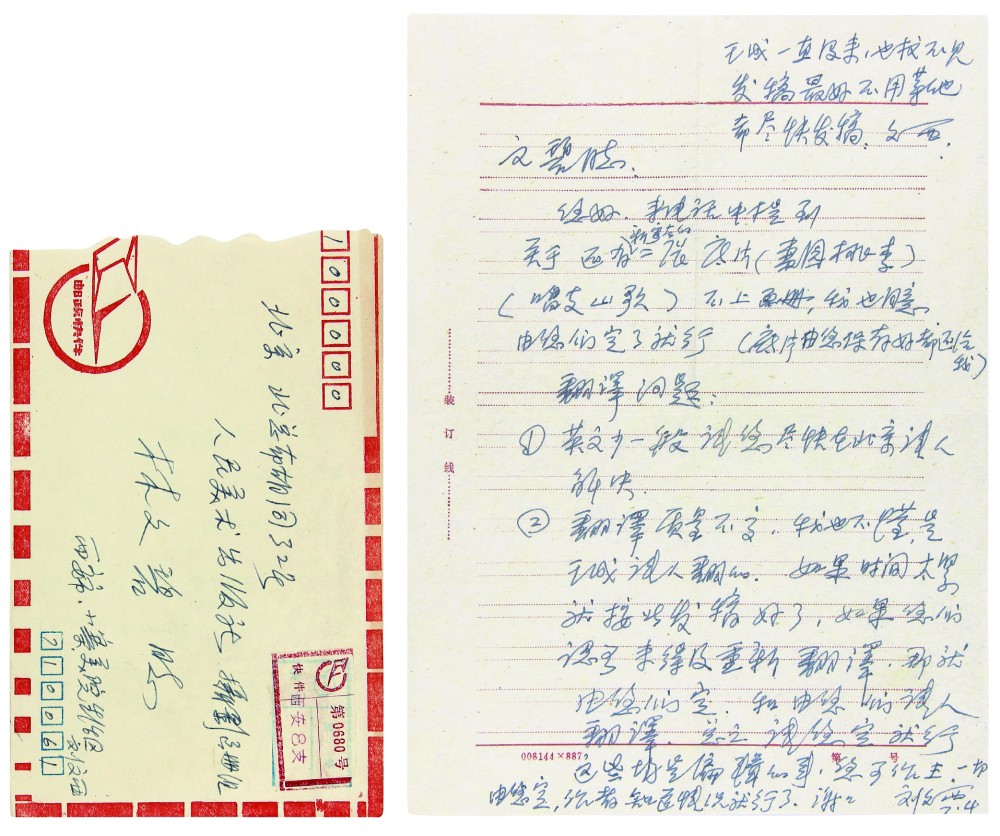 100000
北京 北总布胡同32号
人民美术出版社 摄影画册组
林文碧 收
西安 小寨 美院 家属区
刘文西
710061
邮政快件
快件西安8支
第0680号
王成一直没来,也找不见
发稿最好不用等他
都尽快发稿. 文西.
文碧同志:
您好. 来电话中提到
关于还有二张底片(
新寄去的
(唱支山歌) 不上画册, 我也同意
由您们定了就行 (底片由您保存好都还给
我)
翻译问题:
① 英文少一段 请您尽快在北京请人
解决.
② 翻译质量不高. 我也不懂, 是
王成请人翻的. 如果时间太紧
就按此发稿好了, 如果您们
认为来得及重新翻译. 那就
由您们定. 和由您们请人
翻译. 总之请您定就行
这些都是偏劳的事. 您可作主. 一切
由您定, 作者知道情况就行了. 谢谢 刘文西
7.4
装
订
线
008144×887
第 号